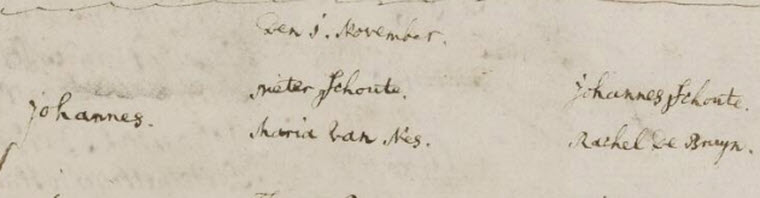 Den 1. November.
Johannes.
Pieter Schoute.
Maria Van Nes.
Johannes Schoute.
Rachel de Bruyn.